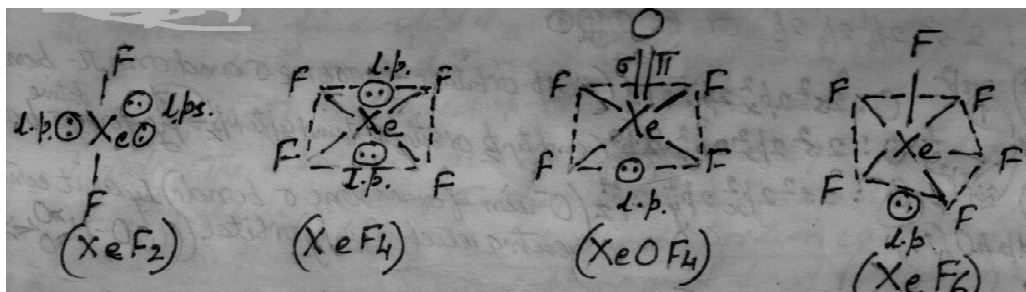 F
l.p. Xe l.ps.
F
(XeF2)
l.p.
F F
Xe
F F
l.p.
(XeF4)
O
σ π
F F
Xe
F F
l.p.
(XeOF4)
F
F F
Xe
F
F
F
l.p.
(XeF6)